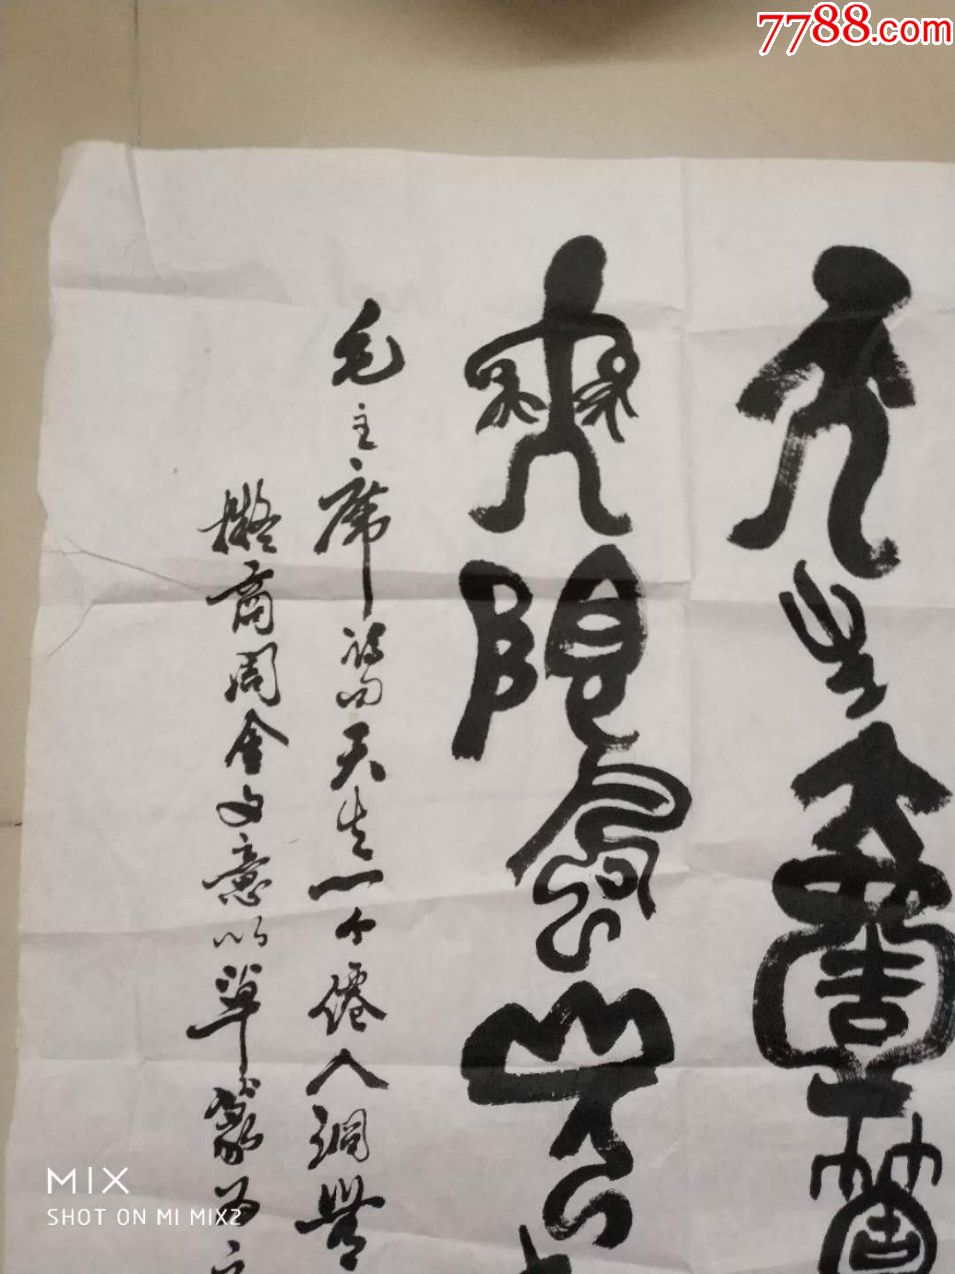 7788.com
天生
無限風光
毛主席詩句天生一个僊人洞
擬商周金文意以草篆为
MIX
SHOT ON MI MIX2